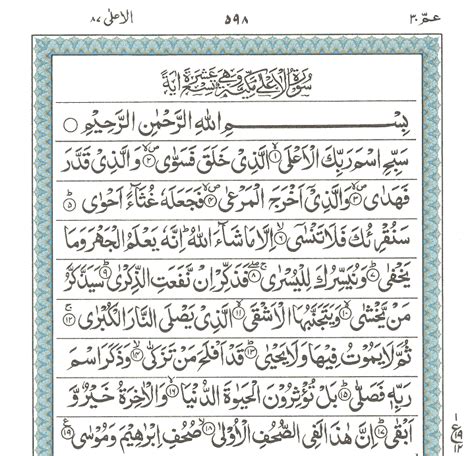 الاعلیٰ ٨٧ ۵۹۸ عـمّ ۳۰
سُوْرَةُ الْاَعْلٰى مَكِّيَّةٌ وَّهِيَ تِسْعَ عَشْرَةَ اٰيَةً
بِسْمِ اللّٰهِ الرَّحْمٰنِ الرَّحِيْمِ ○
سَبِّحِ اسْمَ رَبِّكَ الْاَعْلَى ۙ﴿۱﴾ الَّذِيْ خَلَقَ فَسَوّٰى ۪ۙ﴿۲﴾ وَالَّذِيْ قَدَّرَ
فَهَدٰى ۪ۙ﴿۳﴾ وَالَّذِيْٓ اَخْرَجَ الْمَرْعٰى ۪ۙ﴿۴﴾ فَجَعَلَهٗ غُثَآءً اَحْوٰى ؕ﴿۵﴾
سَنُقْرِئُكَ فَلَا تَنْسٰٓى ۙ﴿۶﴾ اِلَّا مَا شَآءَ اللّٰهُ ؕ اِنَّهٗ يَعْلَمُ الْجَهْرَ وَمَا
يَخْفٰى ؕ﴿۷﴾ وَنُيَسِّرُكَ لِلْيُسْرٰى ۚۖ﴿۸﴾ فَذَكِّرْ اِنْ نَّفَعَتِ الذِّكْرٰى ؕ﴿۹﴾ سَيَذَّكَّرُ
مَنْ يَّخْشٰى ۙ﴿۱۰﴾ وَيَتَجَنَّبُهَا الْاَشْقَى ۙ﴿۱۱﴾ الَّذِيْ يَصْلَى النَّارَ الْكُبْرٰى ۚ﴿۱۲﴾
ثُمَّ لَا يَمُوْتُ فِيْهَا وَلَا يَحْيٰى ؕ﴿۱۳﴾ قَدْ اَفْلَحَ مَنْ تَزَكّٰى ۙ﴿۱۴﴾ وَذَكَرَ اسْمَ
رَبِّهٖ فَصَلّٰى ؕ﴿۱۵﴾ بَلْ تُؤْثِرُوْنَ الْحَيٰوةَ الدُّنْيَا ۖ﴿۱۶﴾ وَالْاٰخِرَةُ خَيْرٌ وَّ
اَبْقٰى ؕ﴿۱۷﴾ اِنَّ هٰذَا لَفِي الصُّحُفِ الْاُوْلٰى ۙ﴿۱۸﴾ صُحُفِ اِبْرٰهِيْمَ وَمُوْسٰى ﴿۱۹﴾ ع
۱
ع۱۹
۱۲